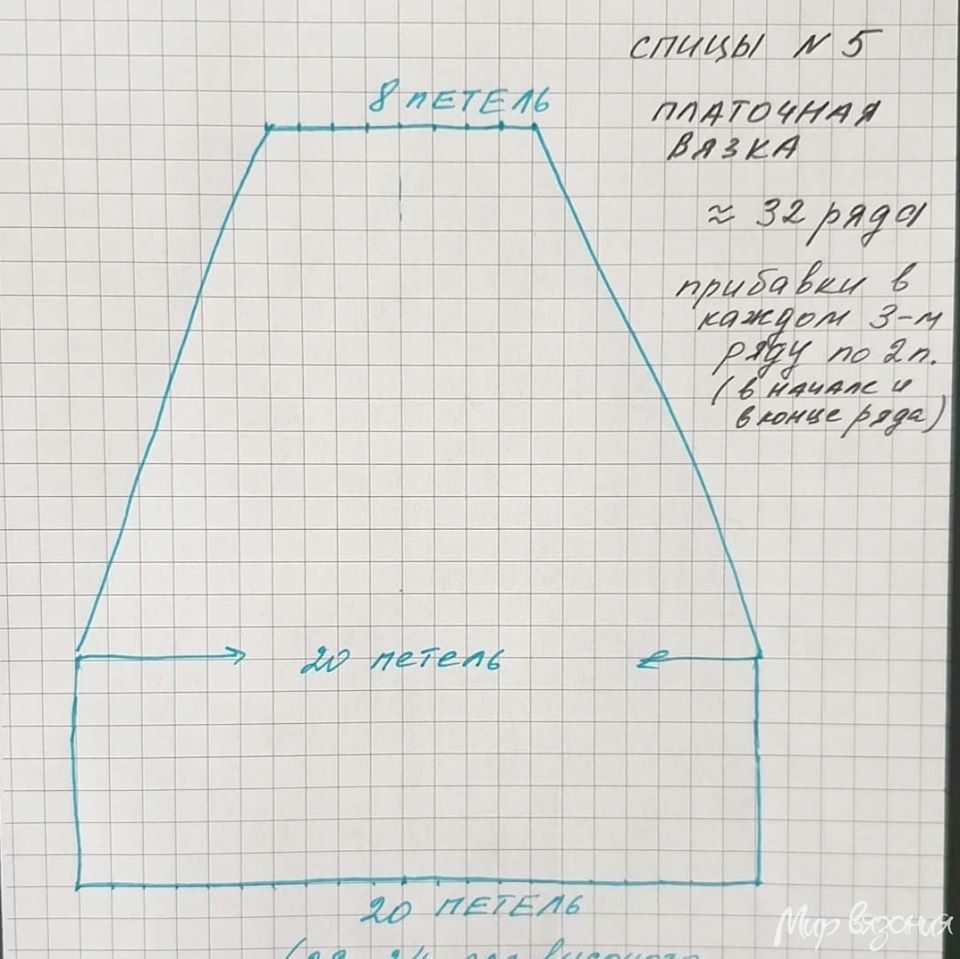 СПИЦЫ N 5
8 ПЕТЕЛЬ
ПЛАТОЧНАЯ
ВЯЗКА
≈ 32 ряда
прибавки в
каждом 3-м
ряду по 2п.
(в начале и
в конце ряда)
20 петель
20 ПЕТЕЛЬ
Мир вязания